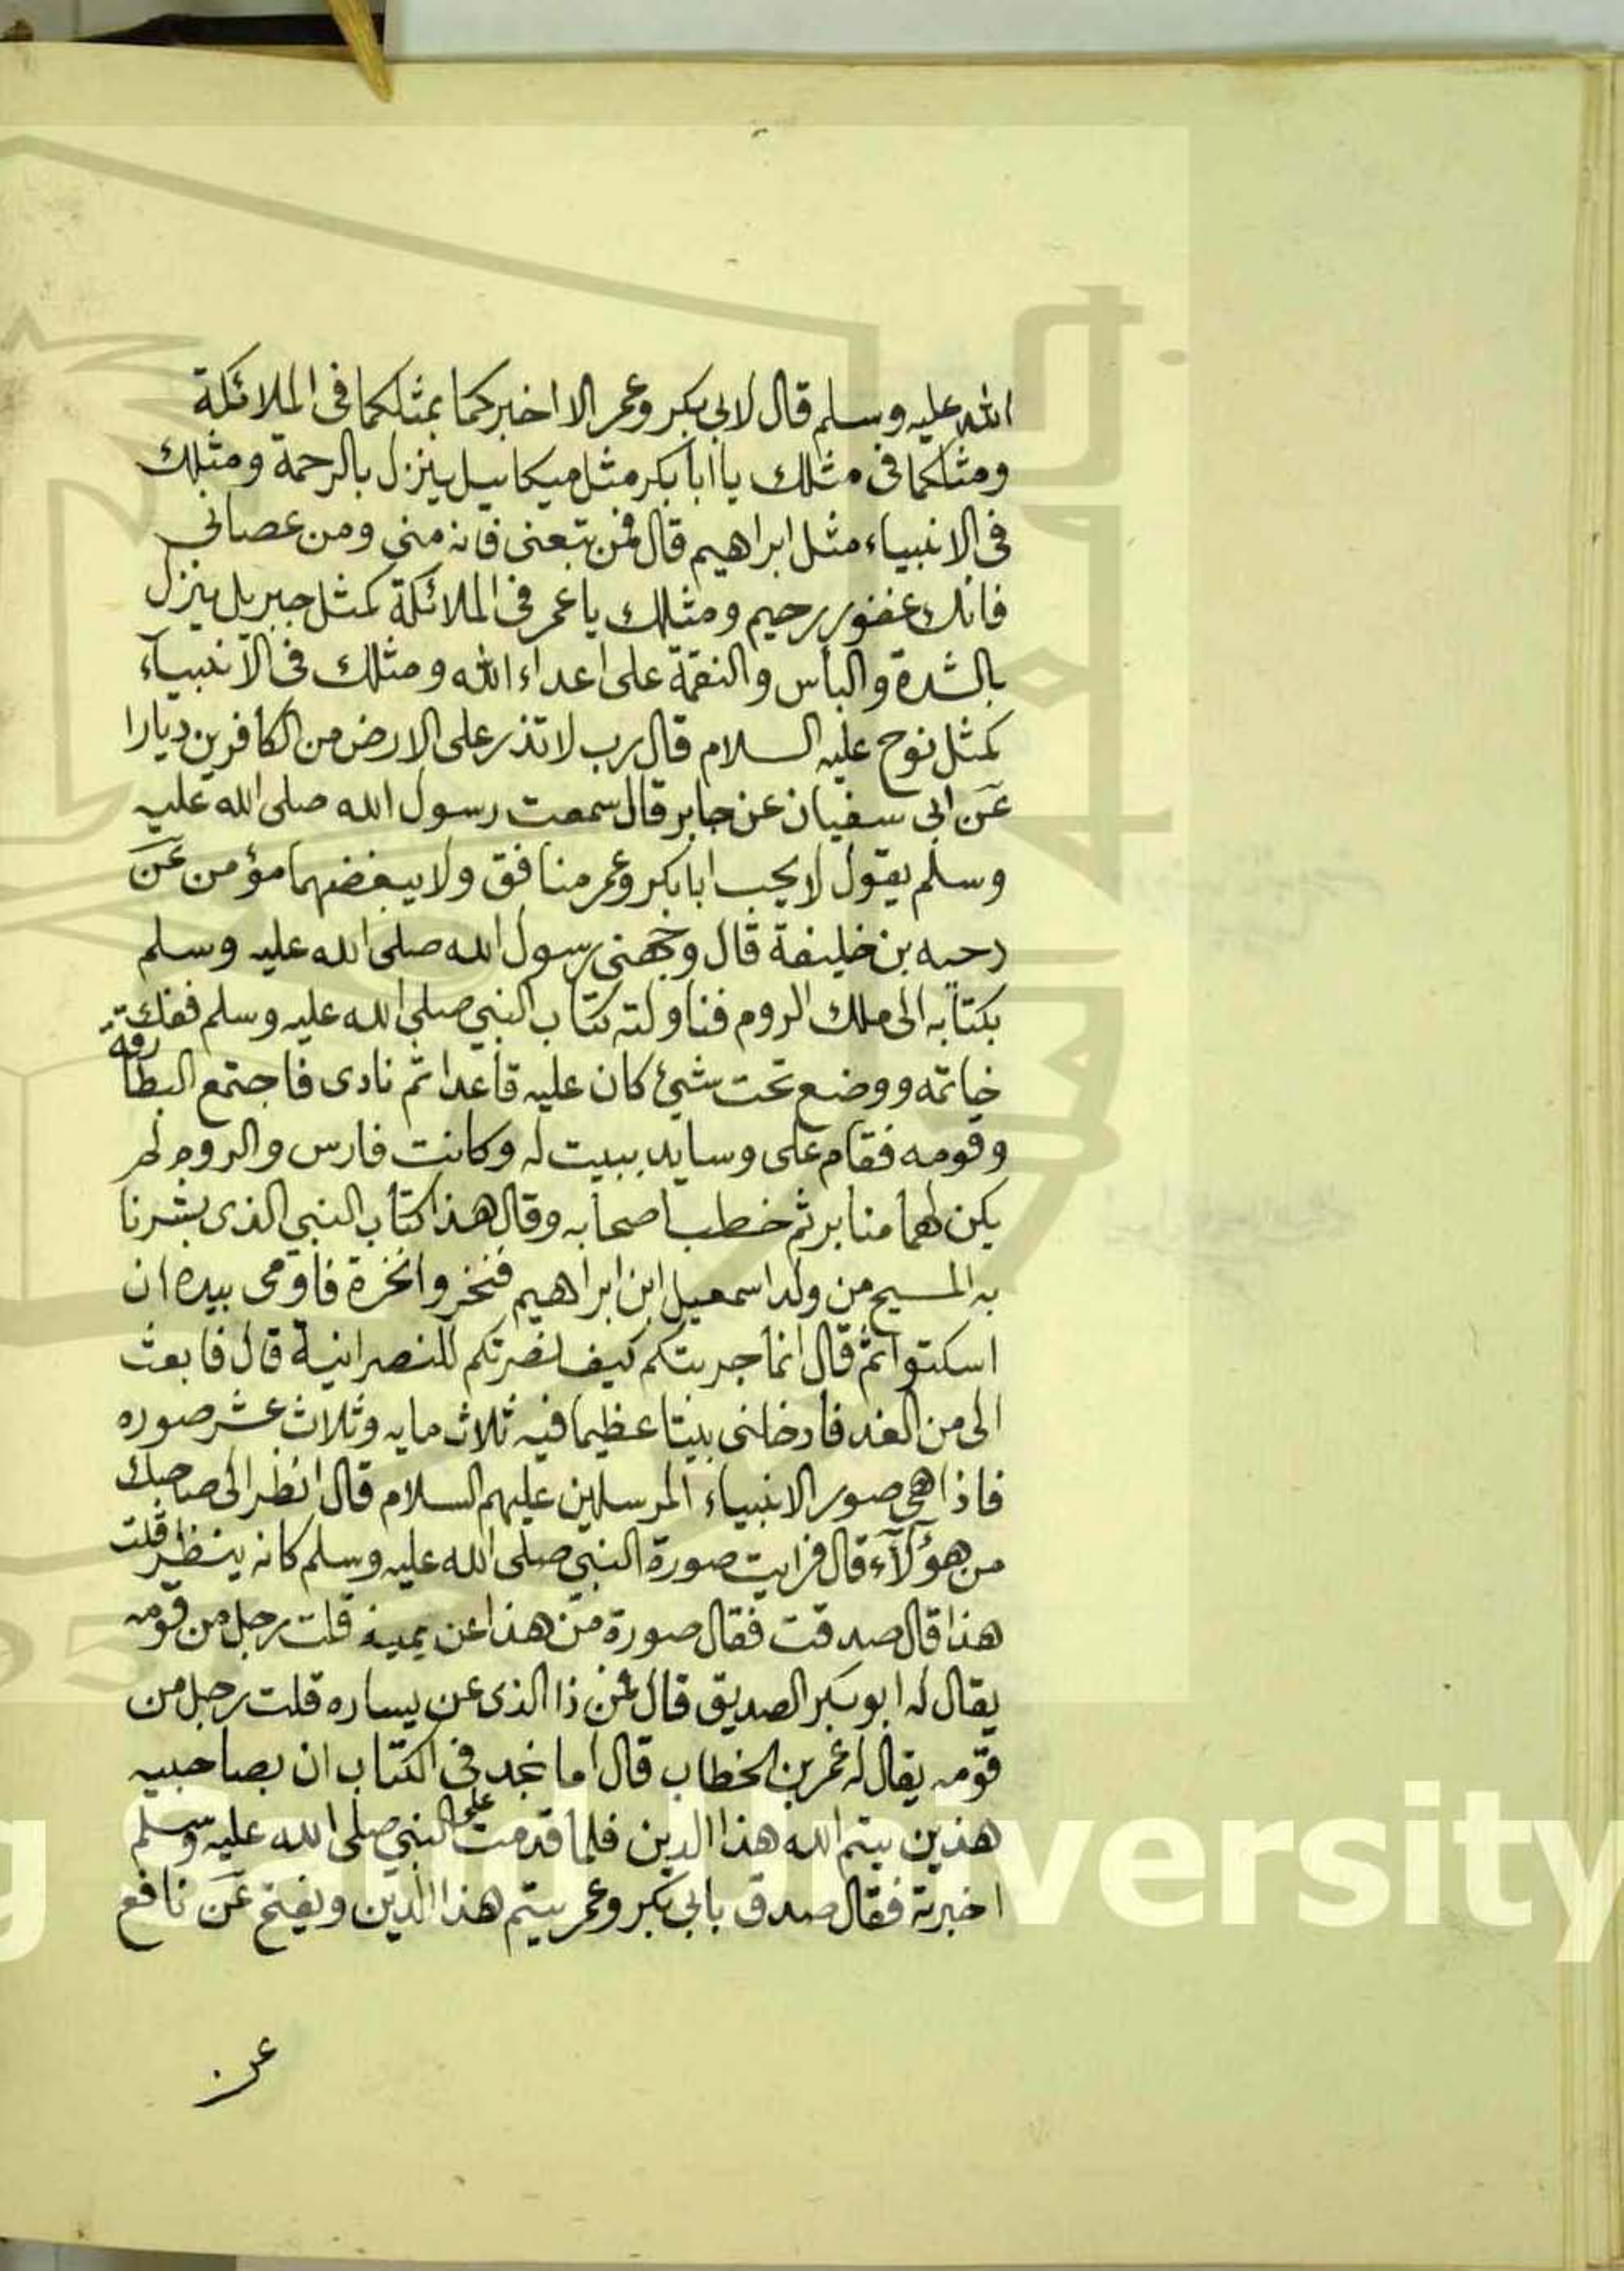 الله عليه وسلم قال لابي بكر وعمر الا اخبركما بمثلكما فى الملائكة
ومثلكما فى مثلك يا ابا بكر مثل ميكاييل ينزل بالرحمة ومثلك
فى الانبياء مثل ابراهيم قال فمن تبعنى فانه منى ومن عصانى
فانك غفور رحيم ومثلك يا عمر فى الملائكة كمثل جبريل ينزل
بالشدة والباس والنقمة على اعداء الله ومثلك فى الانبيآء
كمثل نوح عليه السلام قال رب لا تذر على الارض من الكافرين ديارا
عن ابى سفيان عن جابر قال سمعت رسول الله صلى الله عليه
وسلم يقول لا يحب ابا بكر وعمر منافق ولا يبغضهما مؤمن عن
دحيه بن خليفة قال وجهنى رسول الله صلى الله عليه وسلم
بكتابه الى ملك الروم فناولته كتاب النبي صلى الله عليه وسلم ففك
خاتمه ووضع تحت شئ كان عليه قاعدا ثم نادى فاجتمع البطارقة
وقومه فقام على وسايد ببيت له وكانت فارس والروم لم
يكن لهما منابر ثم خطب اصحابه وقال هذا كتاب النبي الذى بشرنا
به المسيح من ولد اسمعيل ابن ابراهيم فنخروا نخرة فاومى بيده ان
اسكتوا ثم قال انما جربتكم كيف نصرتكم للنصرانية قال فابعث
الى من الغد فادخلنى بيتا عظيما فيه ثلاث مايه وثلاث عشر صوره
فاذا هى صور الانبياء المرسلين عليهم السلام قال انظر الى صاحبك
من هؤلآء قال فرايت صورة النبي صلى الله عليه وسلم كانه ينظر قلت
هذا قال صدقت فقال صورة من هذا عن يمينه قلت رجل من قومه
يقال له ابو بكر الصديق قال فمن ذا الذى عن يساره قلت رجل من
قومه يقال له عمر بن الخطاب قال اما نجد فى الكتاب ان بصاحبيه
هذين يتم الله هذا الدين فلما قدمت على النبي صلى الله عليه وسلم
اخبرته فقال صدق بابي بكر وعمر يتم هذا الدين ويفتح عن نافع
عن